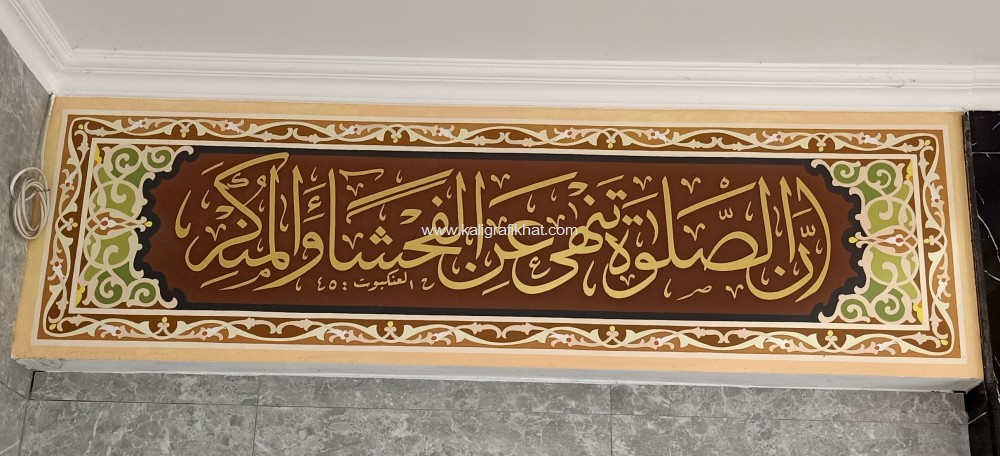 إِنَّ الصَّلَوةَ تَنْهَى عَنِ الْفَحْشَاءِ وَالْمُنْكَرِ
العنكبوت : ٤٥
www.kaligrafikhat.com